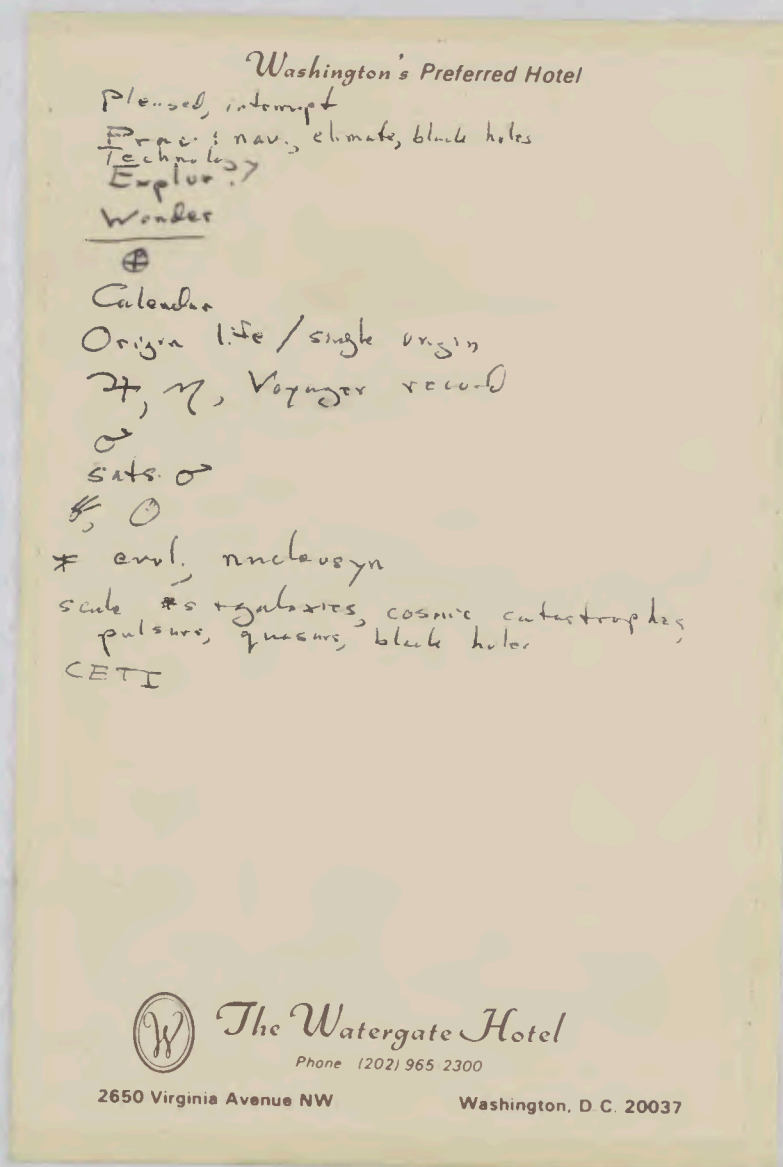 Washington's Preferred Hotel
Pleased, interrupt
Prac: nav., climate, black holes
Technolo
Explor
Wonder
⊕
Calendar
Origin life / single origin
♃, ♄, Voyager record
♂
sats. ♂
☉
* evol., nucleosyn
scale *s + galaxies, cosmic catastrophes,
pulsars, quasars, black holes
CETI
W
The Watergate Hotel
Phone (202) 965-2300
2650 Virginia Avenue NW Washington, D.C. 20037